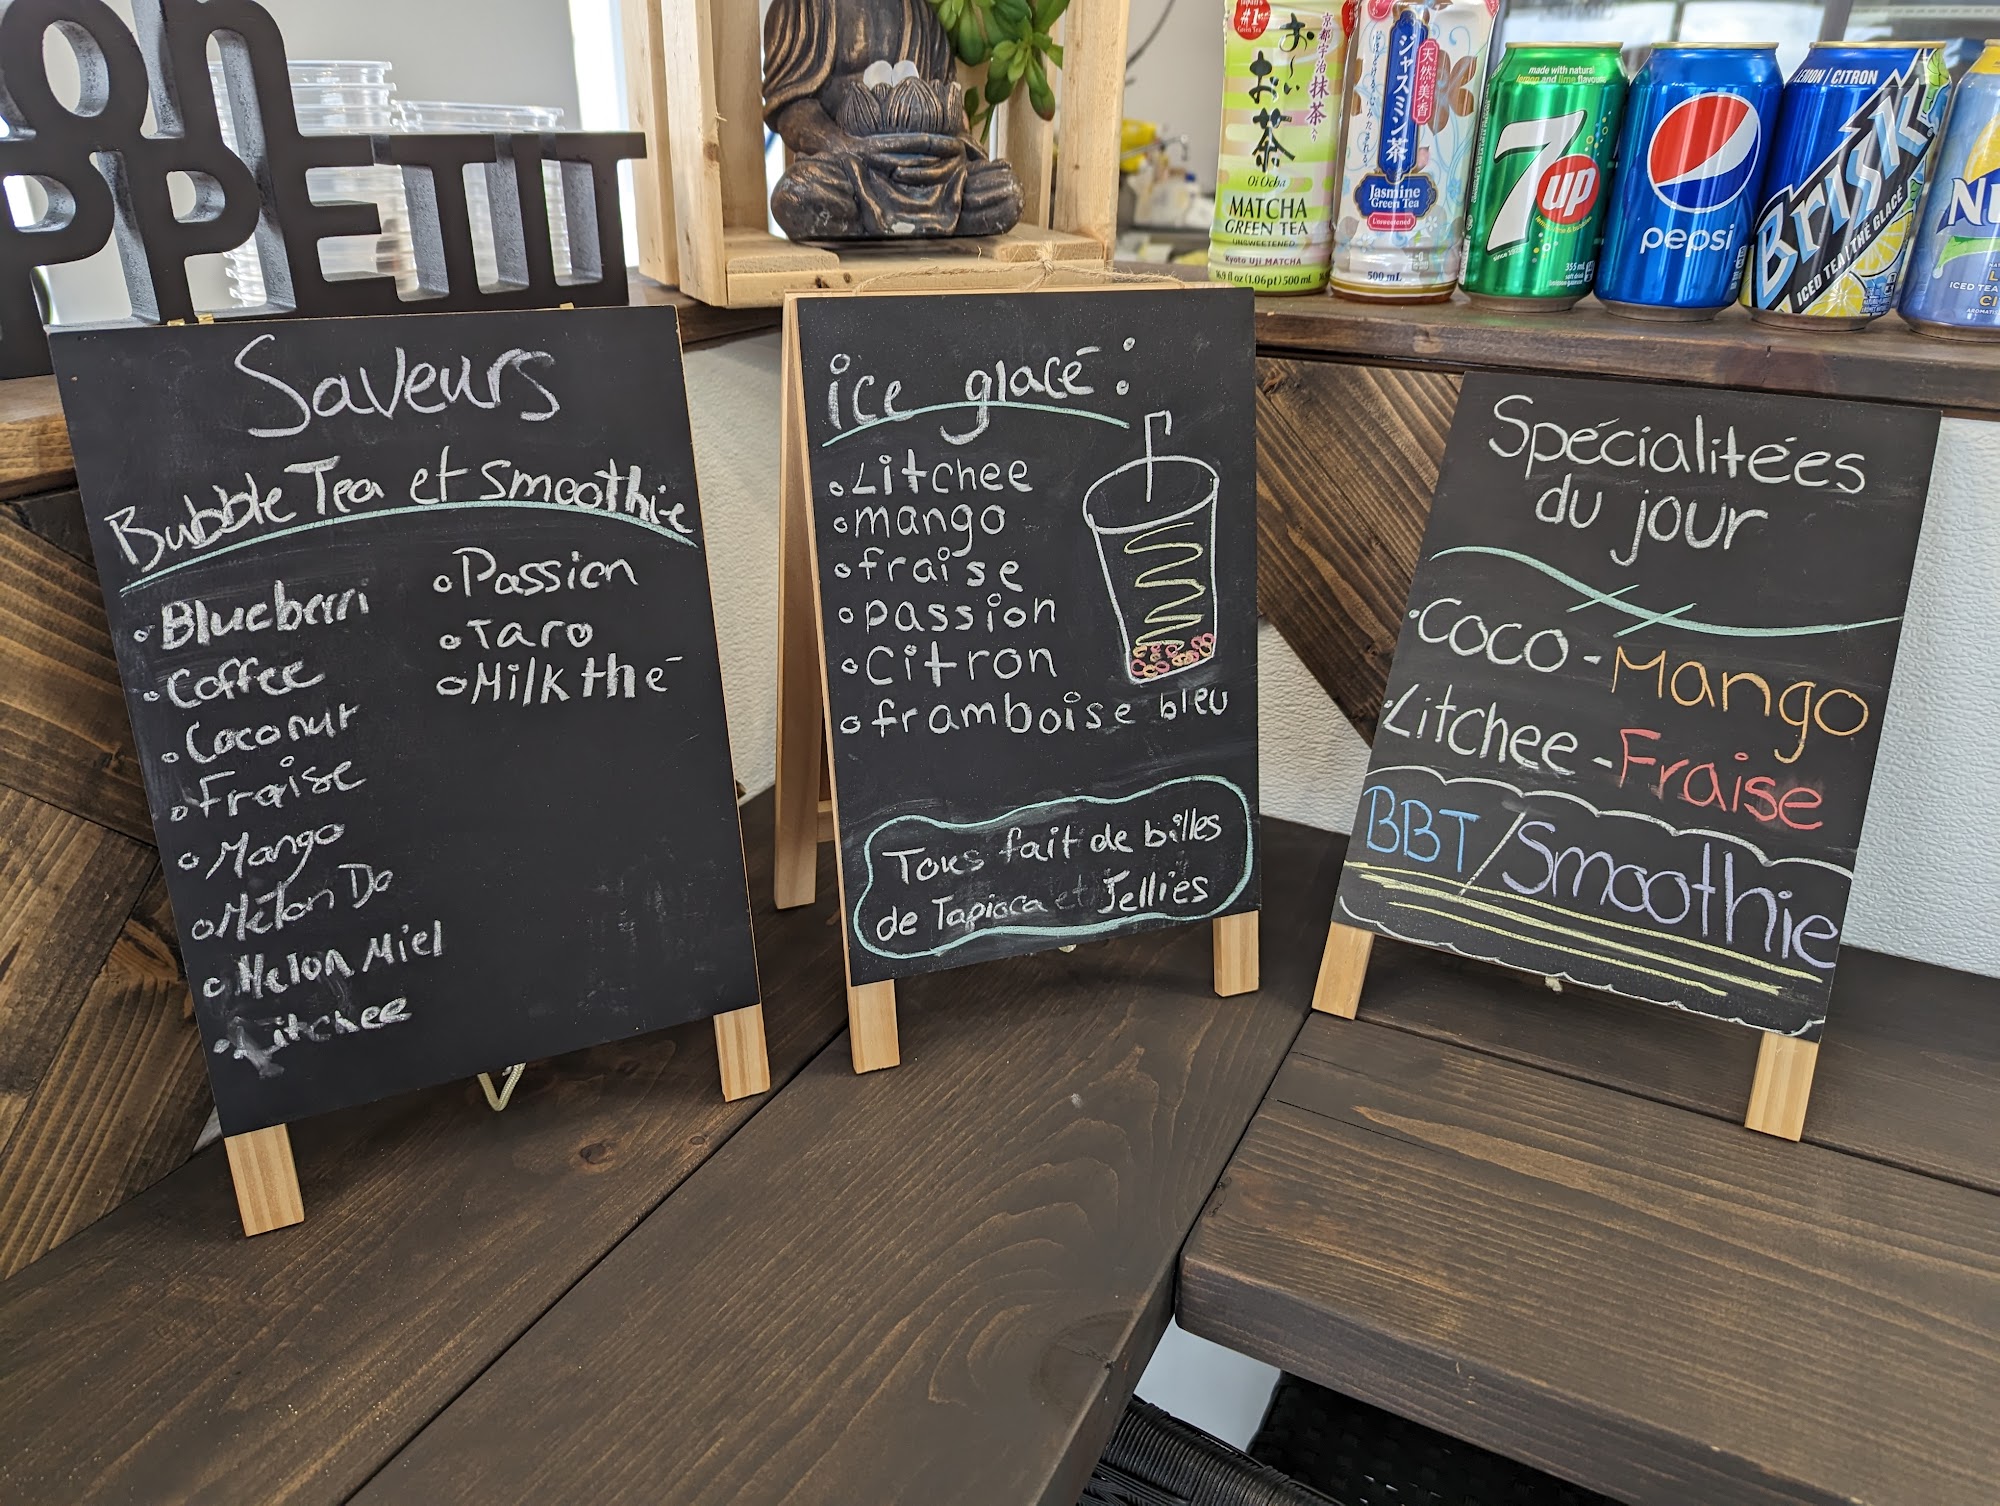 on
PPETIT
Saveurs
Bubble Tea et smoothie
Blueberri
Coffee
Coconut
Fraise
Mango
Melon Da
Melon Miel
Litchee
Passion
Taro
Milk thé
ice glacé:
Litchee
mango
fraise
passion
Citron
framboise bleu
Tous fait de billes
de Tapioca et Jellies
Spécialitées
du jour
Coco-Mango
Litchee-Fraise
BBT/Smoothie
#1
Green Tea
お～い
お茶
京都宇治抹茶入り
Oi Ocha
MATCHA
GREEN TEA
UNSWEETENED
Kyoto Uji MATCHA
16.9 fl oz (1.06pt) 500 mL
天然美香
ジャスミン茶
Jasmine
Green Tea
Unsweetened
500 mL
made with natural
lemon and lime flavours
7up
355 mL
pepsi
LEMON | CITRON
Brisk
ICED TEA | THÉ GLACÉ
ICED TEA